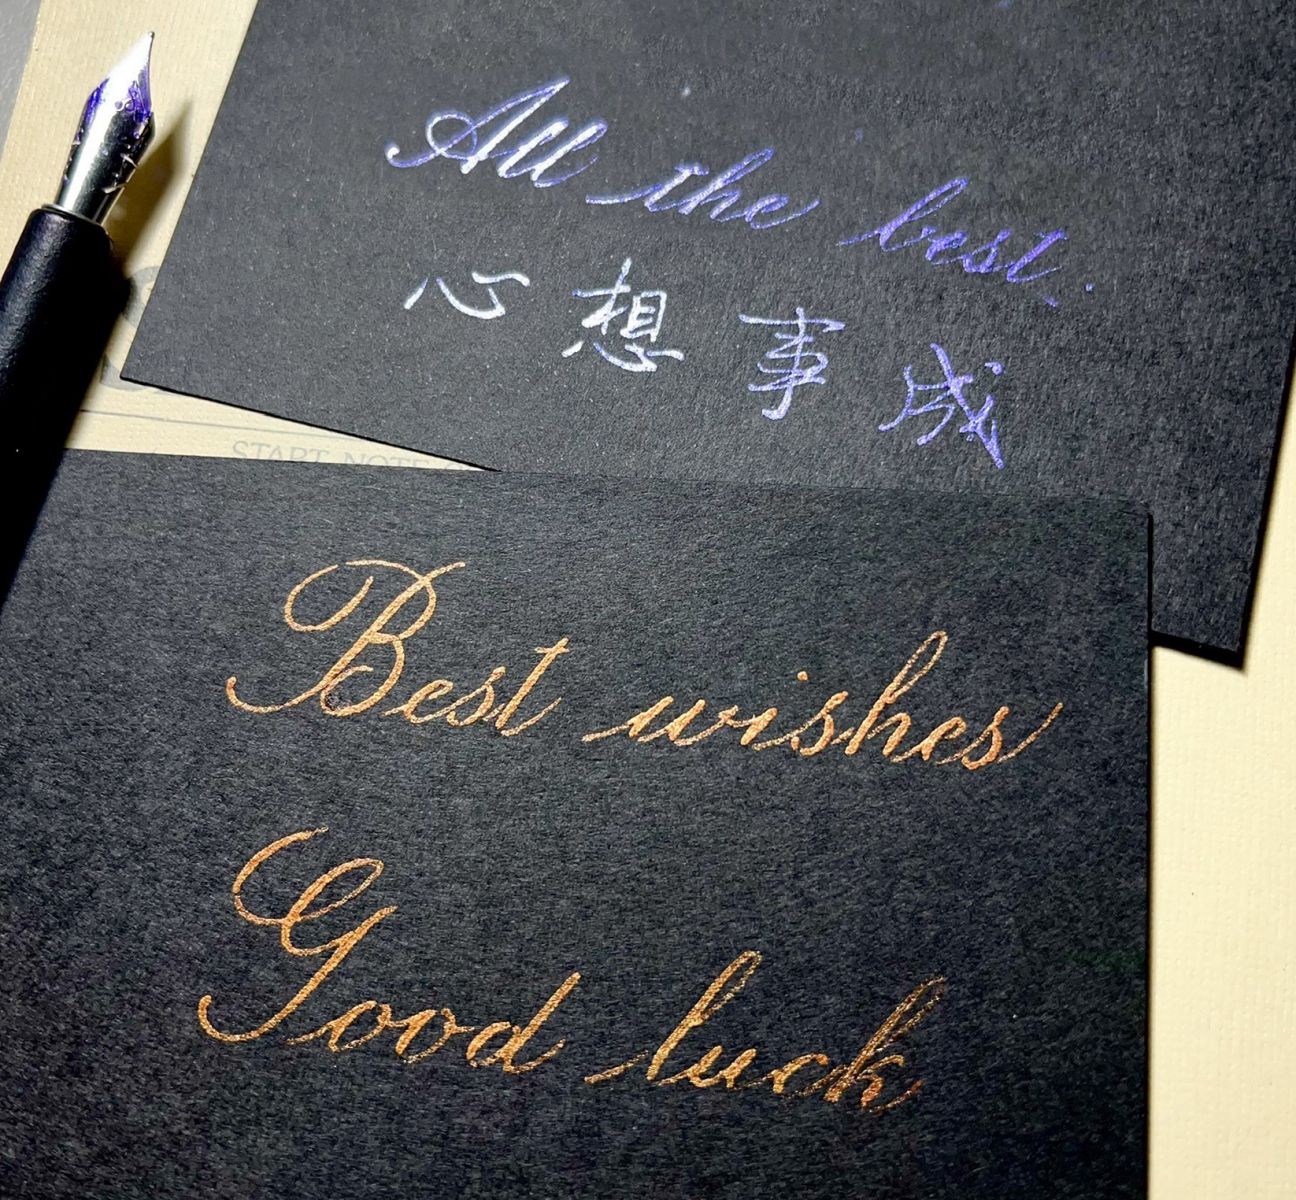 All the best.
心想事成
START NOTE
Best wishes
Good luck